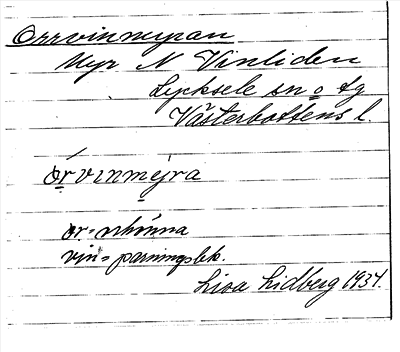 Orrvinmyran
Myr N Vinliden
Lycksele sn o tg
Västerbottens l.
órvınméjra
or = orrhönna
vin = parningslek.
Lisa Lidberg 1934.